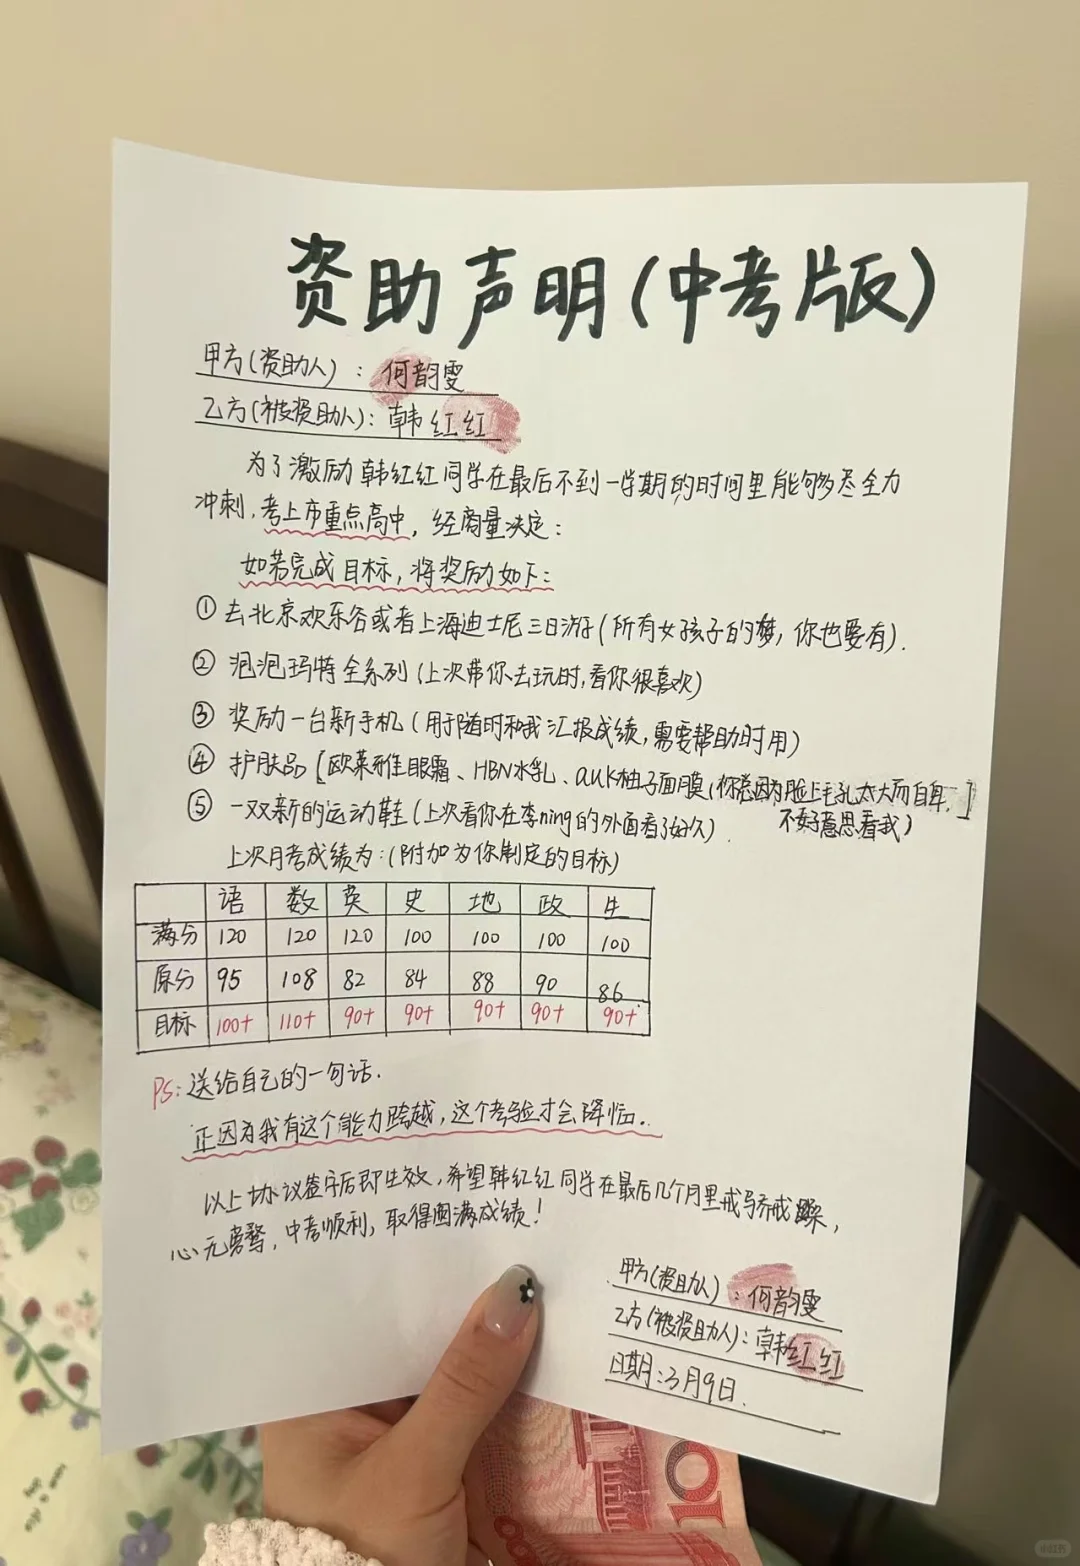 资助声明(中考版)
甲方(资助人):何韵雯
乙方(被资助人):韩红红
为了激励韩红红同学在最后不到一学期的时间里能够尽全力
冲刺,考上市重点高中,经商量决定:
如若完成目标,将奖励如下:
① 去北京欢乐谷或者上海迪士尼三日游(所有女孩子的梦,你也要有).
② 泡泡玛特全系列(上次带你去玩时,看你很喜欢)
③ 奖励一台新手机(用于随时和我汇报成绩,需要帮助时用)
④ 护肤品[欧莱雅眼霜、HBN水乳、auk柚子面膜(你总因为脸上毛孔太大而自卑,]
不好意思看我)
⑤ 一双新的运动鞋(上次看你在李ning的外面看了好久).
上次月考成绩为:(附加为你制定的目标)
语 数 英 史 地 政 生
满分 120 120 120 100 100 100 100
原分 95 108 82 84 88 90 86
目标 100+ 110+ 90+ 90+ 90+ 90+ 90+
PS:送给自己的一句话.
正因为我有这个能力跨越,这个考验才会降临.
以上协议签字后即生效,希望韩红红同学在最后几个月里戒骄戒躁,
心无旁骛,中考顺利,取得圆满成绩!
甲方(资助人):何韵雯
乙方(被资助人):韩红红
日期:3月9日.
100
小红书